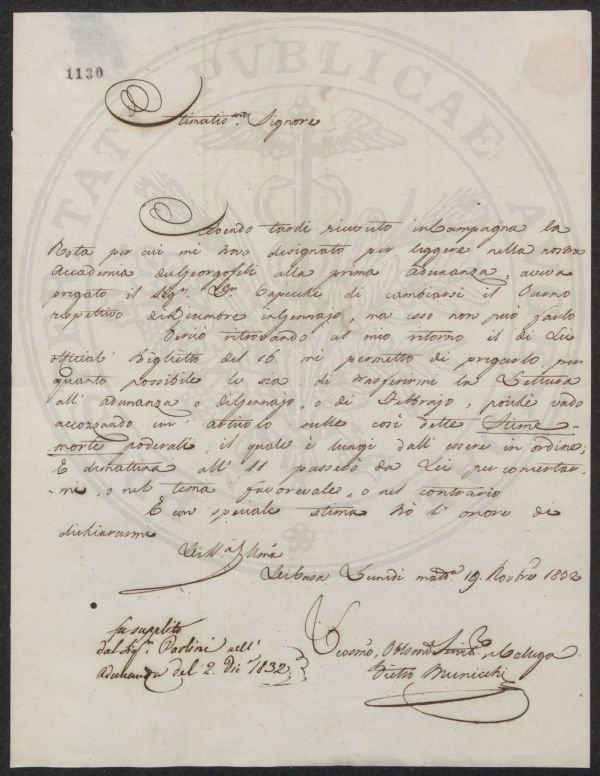 1130
Stimatis.mo Signore
Avendo tardi ricevuto in Campagna la
Nota per cui mi trovo designato per leggere nella nostra
Accademia de Georgofili alla prima adunanza, aveva
pregato il Sigr. Dr. Capecchi di cambiarsi il turno
respettivo di Dicembre in Gennajo, ma esso non può farlo
Perciò ritrovando al mio ritorno il di Lei
official Biglietto del 16. mi permetto di pregarlo, per
quanto possibile le sia, di trasferirmi la Lettura
all' adunanza o di Gennajo, o di Febbrajo, poichè vado
accozzando un' articolo sulle così dette Stime
morte poderali, il quale è lungi dall' essere in ordine;
E dimattina all' 11 passerò da Lei per contentar-
-mi, o nel tema favorevole, o nel contrario
E con speciale stima hò l' onore di
dichiararmi
Di Casa Lunidì matt.a 19. Nov.bre 1832
fu supplito
dal Sigr. Paolini nell'
Adunanza del 2. Dic. 1832
Devmo. Obbmo. Servo. e Collega
Pietro Municchi
PUBLICAE